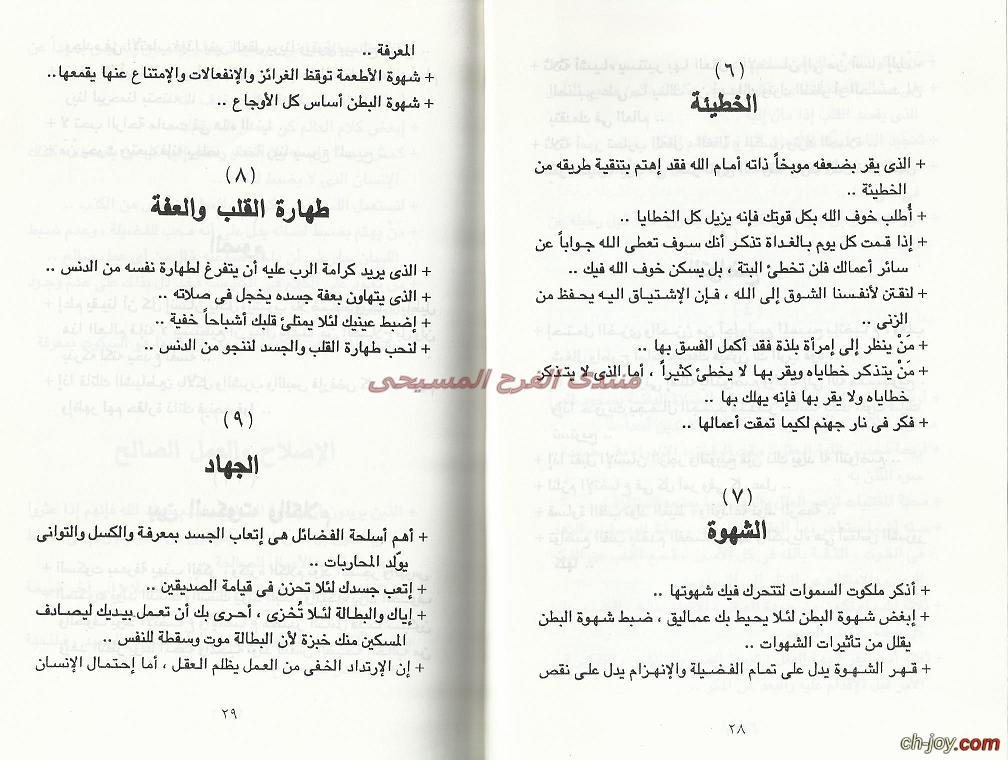 (٦)
الخطيئة
+ الذى يقر بضعفه موبخاً ذاته أمام الله فقد إهتم بتنقية طريقه من
الخطيئة ..
+ أُطلب خوف الله بكل قوتك فإنه يزيل كل الخطايا ..
+ إذا قمت كل يوم بالغداة تذكر أنك سوف تعطى الله جواباً عن
سائر أعمالك فلن تخطئ البتة ، بل يسكن خوف الله فيك ..
+ لنقتن لأنفسنا الشوق إلى الله ، فإن الإشتياق اليه يحفظ من
الزنى ..
+ مَنْ ينظر إلى إمرأة بلذة فقد أكمل الفسق بها ..
+ مَنْ يتذكر خطاياه ويقر بها لا يخطئ كثيراً ، أما الذى لا يتذكر
خطاياه ولا يقر بها فإنه يهلك بها ..
+ فكر فى نار جهنم لكيما تمقت أعمالها ..
(٧)
الشهوة
+ أذكر ملكوت السموات لتتحرك فيك شهوتها ..
+ إبغض شهوة البطن لئلا يحيط بك عماليق ، ضبط شهوة البطن
يقلل من تأثيرات الشهوات ..
+ قهر الشهوة يدل على تمام الفضيلة والإنهزام يدل على نقص
٢٨
المعرفة ..
+ شهوة الأطعمة توقظ الغرائز والإنفعالات والإمتناع عنها يقمعها..
+ شهوة البطن أساس كل الأوجاع ..
(٨)
طهارة القلب والعفة
+ الذى يريد كرامة الرب عليه أن يتفرغ لطهارة نفسه من الدنس ..
+ الذى يتهاون بعفة جسده يخجل فى صلاته ..
+ إضبط عينيك لئلا يمتلئ قلبك أشباحاً خفية ..
+ لنحب طهارة القلب والجسد لننجو من الدنس ..
(٩)
الجهاد
+ أهم أسلحة الفضائل هى إتعاب الجسد بمعرفة والكسل والتوانى
يولّد المحاربات ..
+ إتعب جسدك لئلا تحزن فى قيامة الصديقين ..
+ إياك والبطالة لئلا تُخزى ، أحرى بك أن تعمل بيديك ليصادف
المسكين منك خبزة لأن البطالة موت وسقطة للنفس ..
+ إن الإرتداد الخفى من العمل يظلم العقل ، أما إحتمال الإنسان
٢٩
منتدى الفرح المسيحى
ch-joy.com